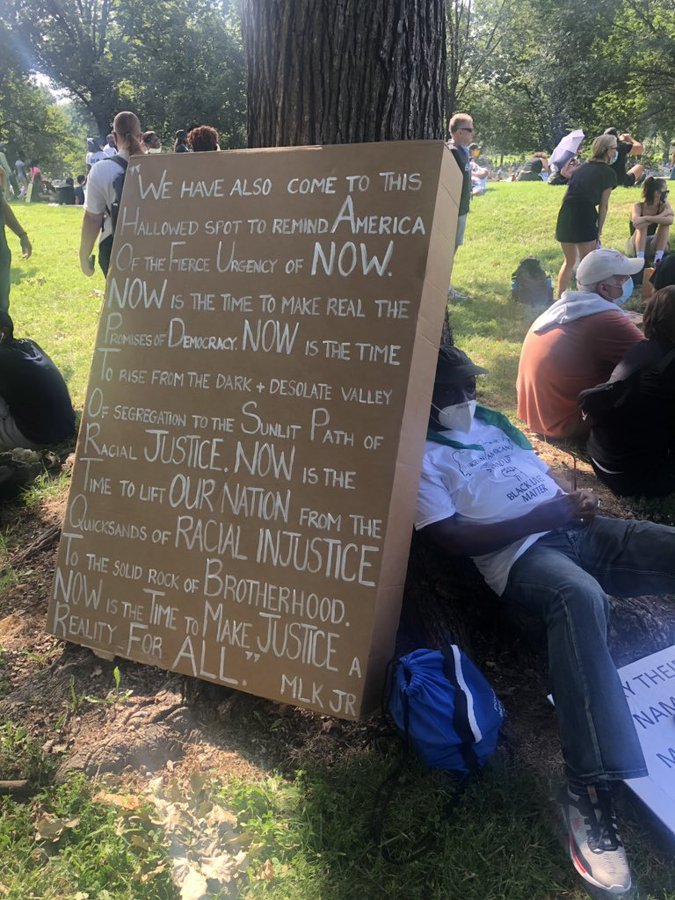 "WE HAVE ALSO COME TO THIS
HALLOWED SPOT TO REMIND AMERICA
OF THE FIERCE URGENCY OF NOW.
NOW IS THE TIME TO MAKE REAL THE
PROMISES OF DEMOCRACY. NOW IS THE TIME
TO RISE FROM THE DARK + DESOLATE VALLEY
OF SEGREGATION TO THE SUNLIT PATH OF
RACIAL JUSTICE. NOW IS THE
TIME TO LIFT OUR NATION FROM THE
QUICKSANDS OF RACIAL INJUSTICE
TO THE SOLID ROCK OF BROTHERHOOD.
NOW IS THE TIME TO MAKE JUSTICE A
REALITY FOR ALL."
MLK JR
BLACK LIVES
MATTER
THEIR
NAM